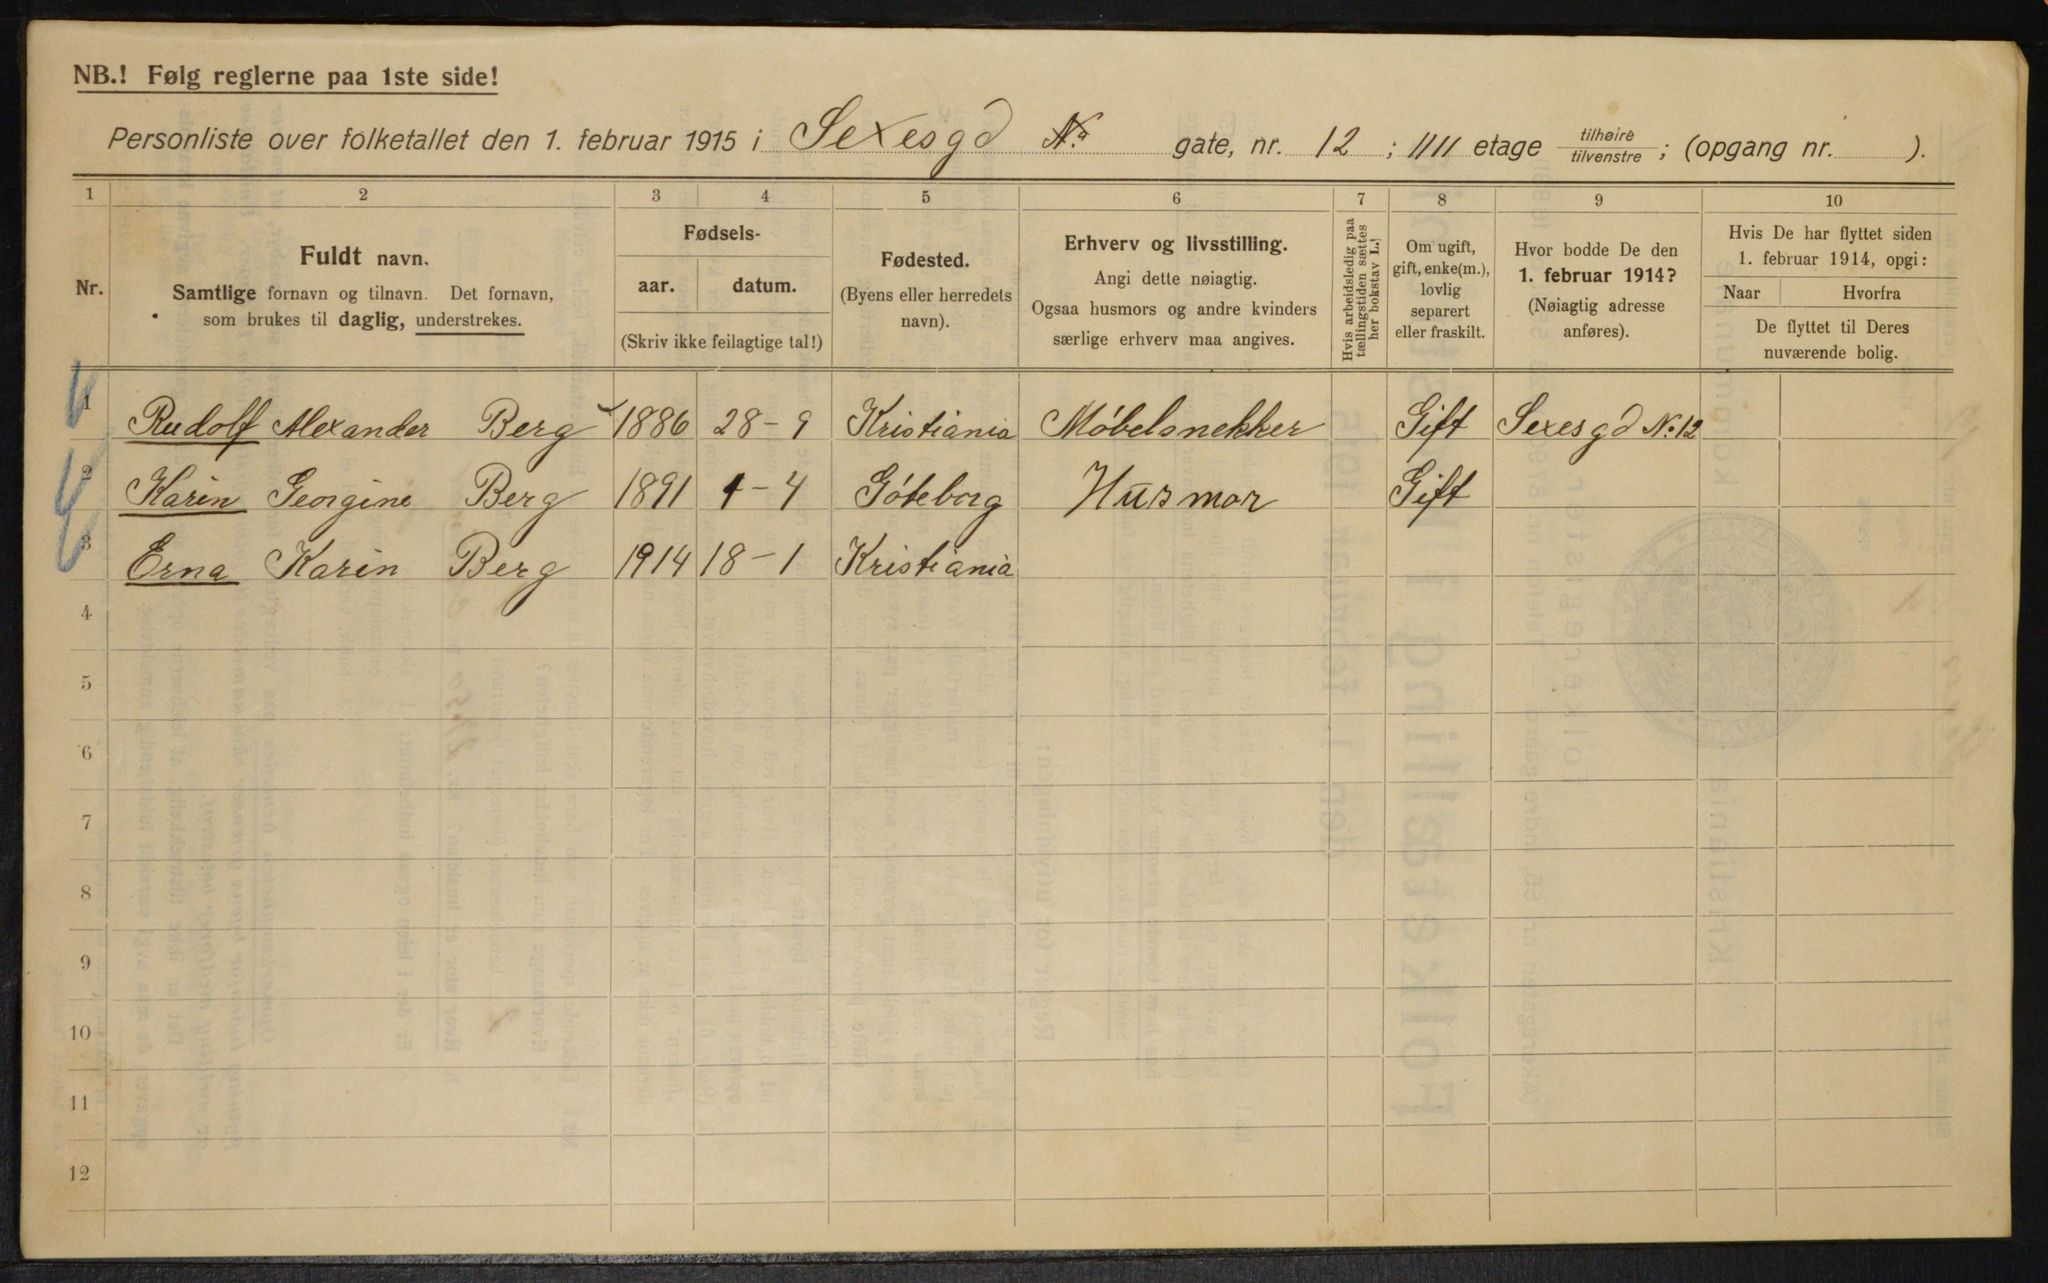 NB.! Følg reglerne paa 1ste side!
Personliste over folketallet den 1. februar 1915 i Sexesgd No gate, nr. 12 ; IIII etage tilhøire / tilvenstre ; (opgang nr. ).
1 2 3 4 5 6 7 8 9 10
Nr.
Fuldt navn.
Samtlige fornavn og tilnavn. Det fornavn,
som brukes til daglig, understrekes.
Fødsels-
aar. datum.
(Skriv ikke feilagtige tal!)
Fødested.
(Byens eller herredets
navn).
Erhverv og livsstilling.
Angi dette nøiagtig.
Ogsaa husmors og andre kvinders
særlige erhverv maa angives.
Hvis arbeidsledig paa
tællingstiden sættes
her bokstav L.!
Om ugift,
gift, enke(m.),
lovlig
separert
eller fraskilt.
Hvor bodde De den
1. februar 1914?
(Nøiagtig adresse
anføres).
Hvis De har flyttet siden
1. februar 1914, opgi:
Naar Hvorfra
De flyttet til Deres
nuværende bolig.
1 Rudolf Alexander Berg 1886 28-9 Kristiania Møbelsnekker Gift Sexesgd No 12
2 Karin Georgine Berg 1891 1-4 Göteborg Husmor Gift
3 Erna Karin Berg 1914 18-1 Kristiania
4
5
6
7
8
9
10
11
12